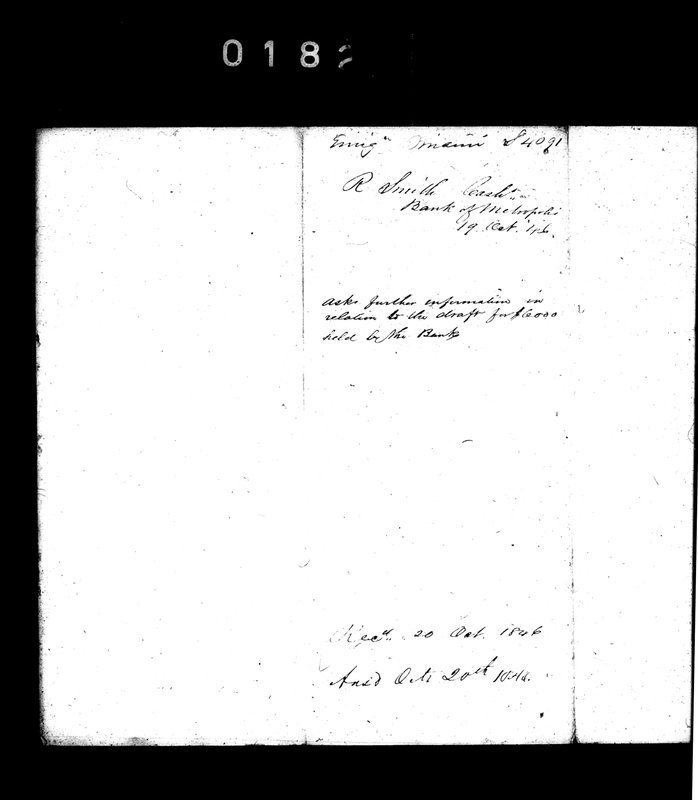 0182
Emigⁿ Miami S4091
R Smith Cashʳ
Bank of Metropolis
19 Oct. 46.
asks further information in
relation to the draft for $6000
held by the Bank
Recᵈ. 20 Oct. 1846
Ansd Oct 20th 1846.